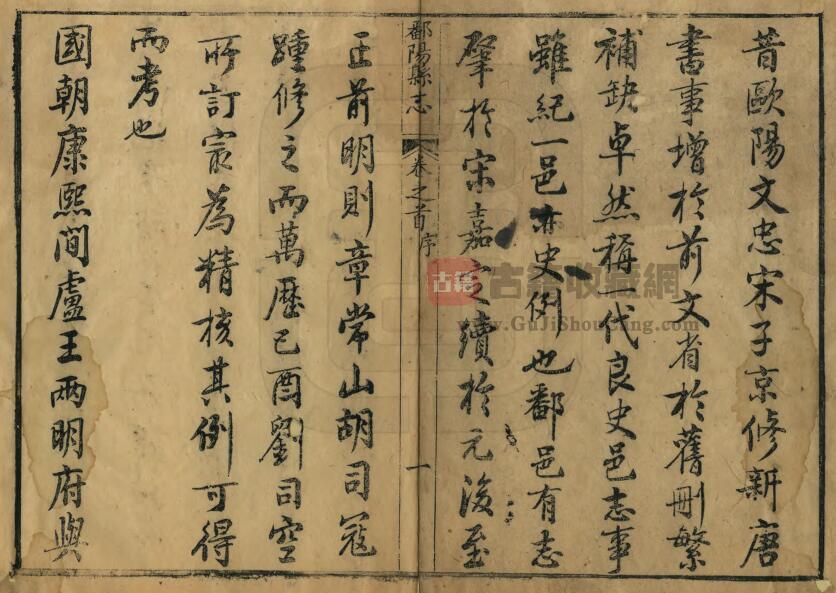 昔歐陽文忠宋子京修新唐
書事增於前文省於舊刪繁
補缺卓然稱一代良史邑志事
雖紀一邑亦史例也鄱邑有志
肇於宋嘉定續於元後至
鄱陽縣志 卷之首序 一
正前明則章常山胡司寇
踵修之而萬歷己酉劉司空
所訂㝡為精核其例可得
而考也
國朝康熙間盧王兩明府與
古籍 古籍收藏網
www.GuJiShouCang.com